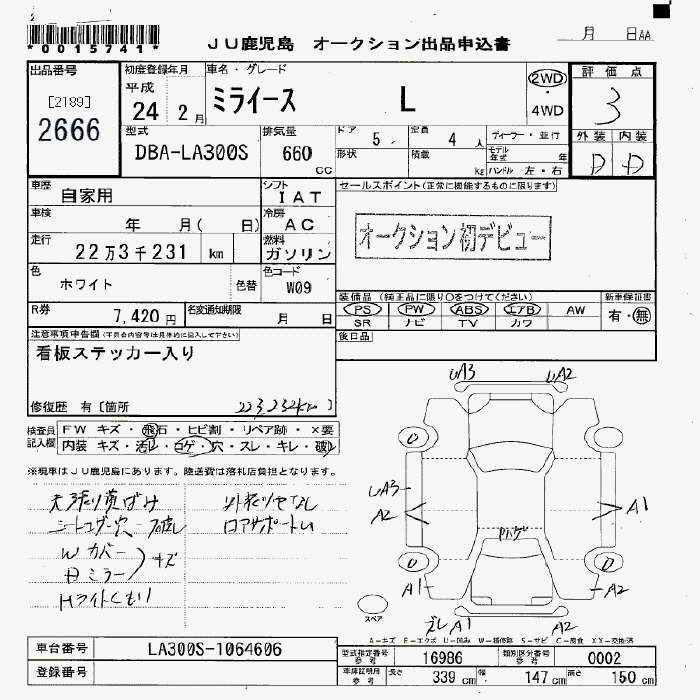 *0015741*
JU鹿児島 オークション出品申込書
月 日AA
出品番号
[2189]
2666
初度登録年月
平成
24 2月
車名・グレード
ミライース L
2WD
・
4WD
評価点
3
外装 内装
D D
型式
DBA-LA300S
排気量
660 CC
ドア 5
定員 4 人
形状
積載 kg
ディーラー・並行
モデル年式 年
ハンドル 左・右
車歴
自家用
シフト
IAT
車検
年 月( 日)
冷房
AC
走行
22万3千231 km
燃料
ガソリン
色
ホワイト
色替
色コード
W09
R券
7,420円
名変通知期限
月 日
セールスポイント(正常に機能するものに限ります)
オークション初デビュー
装備品(純正品に限り○をつけてください)
PS PW ABS エアB AW
SR ナビ TV カワ
新車保証書
有・無
後日品
注意事項申告欄(不具合内容等は具体的に記入して下さい)
看板ステッカー入り
修復歴 有〔箇所 〕
223,232km
検査員記入欄
FW キズ・飛石・ヒビ割・リペア跡・×要
内装 キズ・汚レ・コゲ・穴・スレ・キレ・破レ
※現車はJU鹿児島にあります。陸送費は落札店負担となります。
シートコゲ穴
Wカバー
Dミラー
キズ
Hライトくもり
外装ツヤなし
ロアサポートU
UA3 UA2
UA3
A2
A1
A1
A2
A1
A2
スペア
A-キズ E-エクボ U-凹み W-補修跡 S-サビ C-腐食 XX-交換済
車台番号
LA300S-1064606
登録番号
型式指定番号 参考
16986
類別区分番号 参考
0002
車庫証明用 参考
長さ 339 cm 幅 147 cm 高さ 150 cm